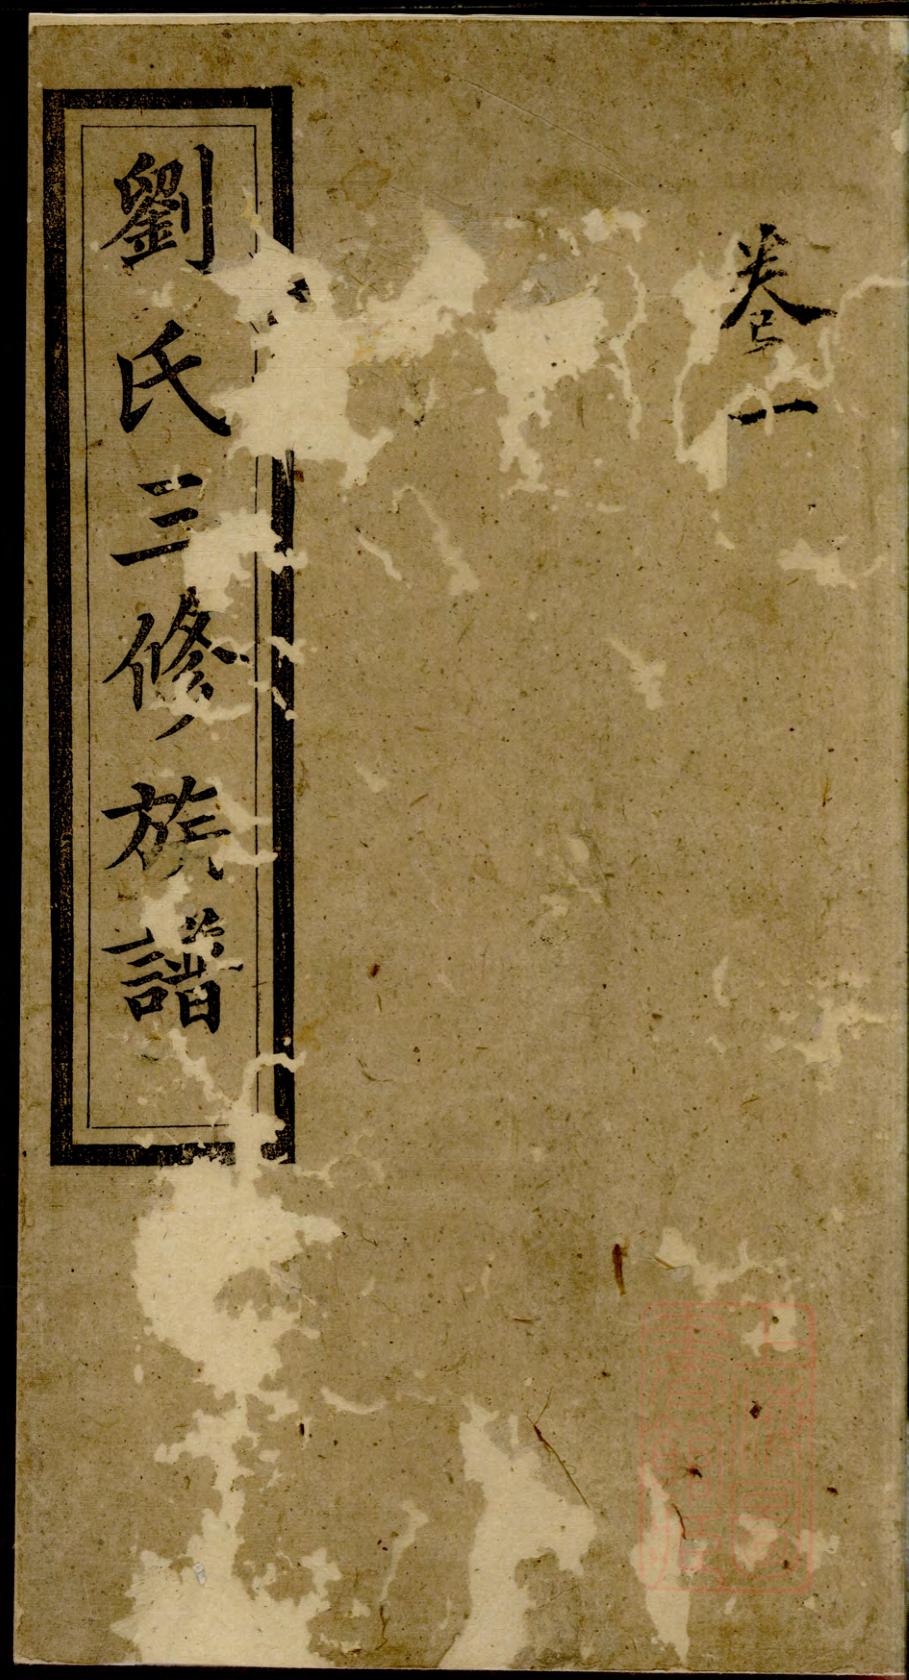 卷一
劉氏三修族譜